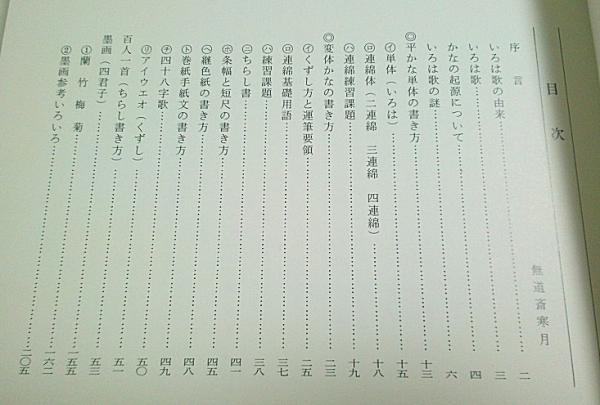 目次
無道斎寒月
序言……二
いろは歌の由来……三
いろは歌……四
かなの起源について……六
いろは歌の謎……十三
◎平かな単体の書き方……十五
㋑単体(いろは)……十八
㋺連綿体(二連綿 三連綿 四連綿)……十九
㋩連綿練習課題……二三
◎変体かなの書き方……二五
㋑くずし方と運筆要領……三七
㋺連綿基礎用語……三八
㋩練習課題……四一
㋥ちらし書……四五
㋭条幅と短尺の書き方……四八
㋬継色紙の書き方……四九
㋣巻紙手紙文の書き方……五〇
㋠四十八字歌……五一
㋷アイウエオ(くずし)……五三
百人一首(ちらし書き方)……一五五
墨画(四君子)
①蘭竹梅菊……一六二
②墨画参考いろいろ……二〇五